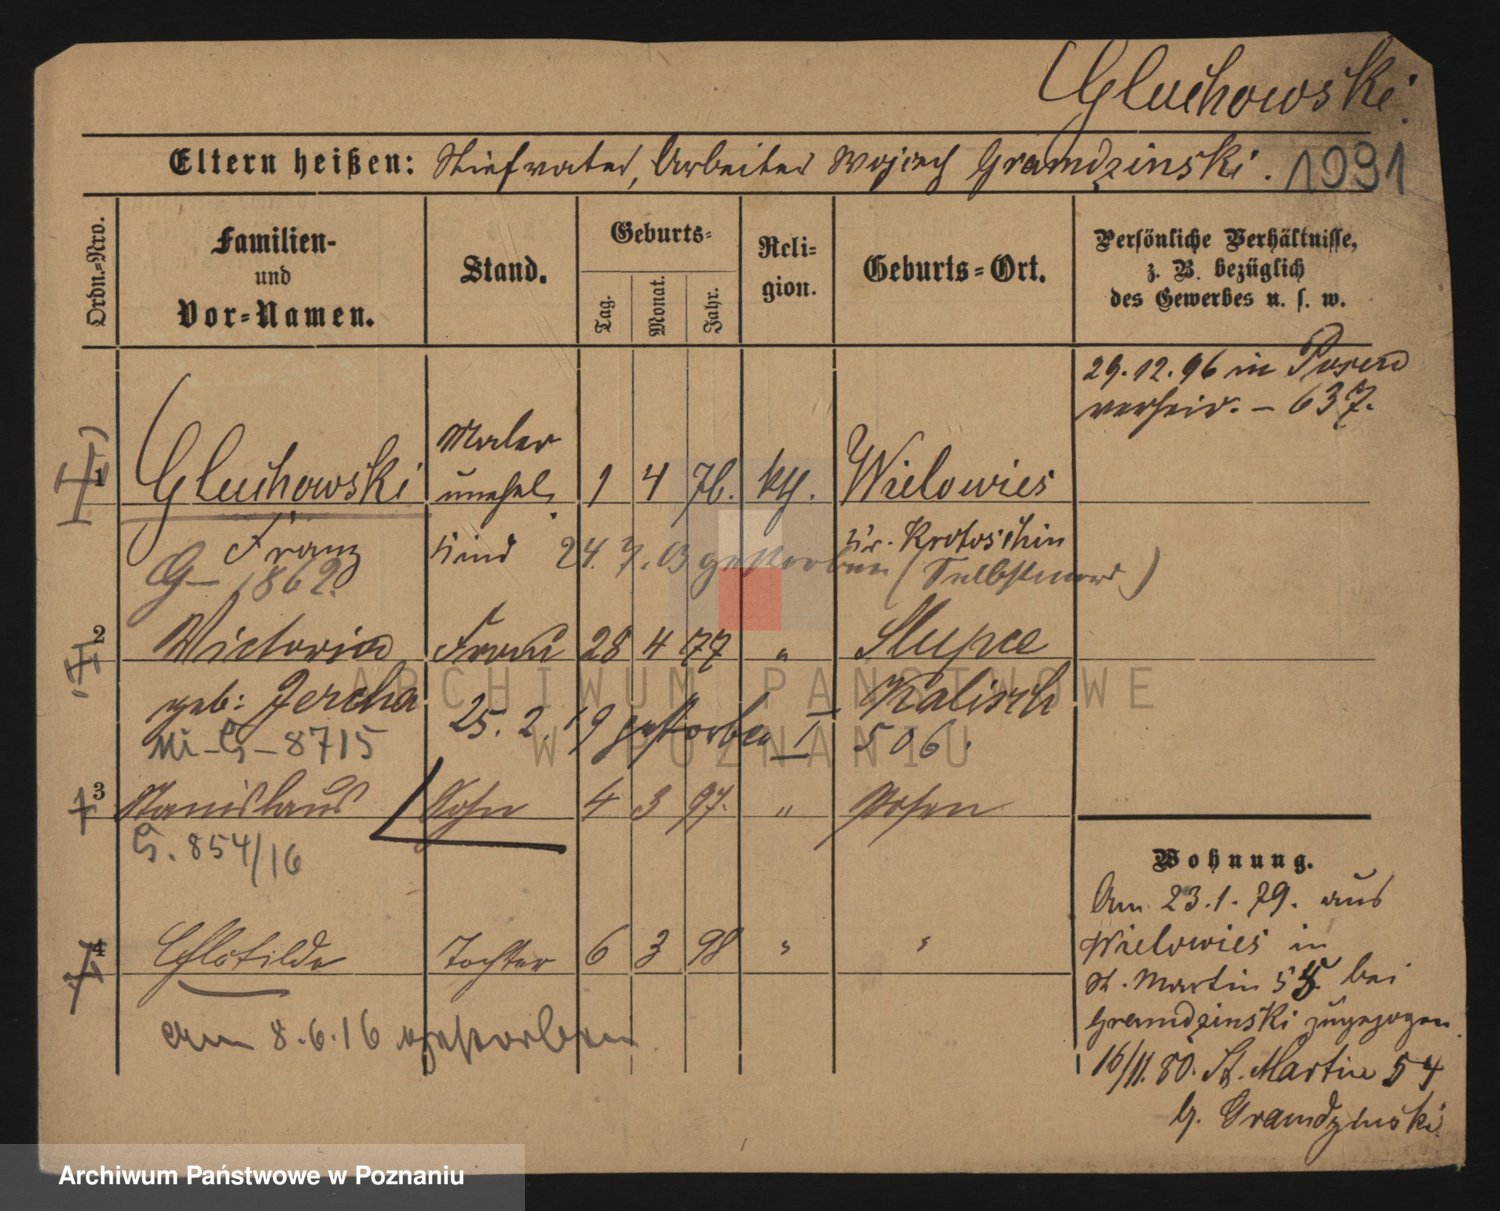 Gluchowski.
Eltern heißen: Stiefvater, Arbeiter Wojcech Gramdzinski. 1991
Ordn.=Nro.
Familien-
und
Vor=Namen.
Stand.
Geburts=
Tag. Monat. Jahr.
Reli=
gion.
Geburts=Ort.
Persönliche Verhältnisse,
z. B. bezüglich
des Gewerbes u. s. w.
29.12.96 in Posen
verheir. – 637.
1 Gluchowski Maler unehel. 1 4 76. kth. Wielowies
Franz Kind 24. 7. 03 gestorben (Selbstmord) Kr. Krotoschin
G– 1862.
2 Victoria Frau 28 4 77 " Slupce
geb: Jercha 25. 2. 19 gestorben I Kalisch
Mi-G-8715 506.
3 Stanislaus Sohn 4 3 97. " Posen
G. 854/16
4 Chlotilde Tochter 6 3 98 " "
am 8.6.16 gestorben
Wohnung.
Am 23.1.79. aus
Wielowies in
St. Martin 55 bei
Gramdzinski zugezogen.
16/11.80. St. Martin 54
b. Gramdzinski
ARCHIWUM PAŃSTWOWE
W POZNANIU
Archiwum Państwowe w Poznaniu